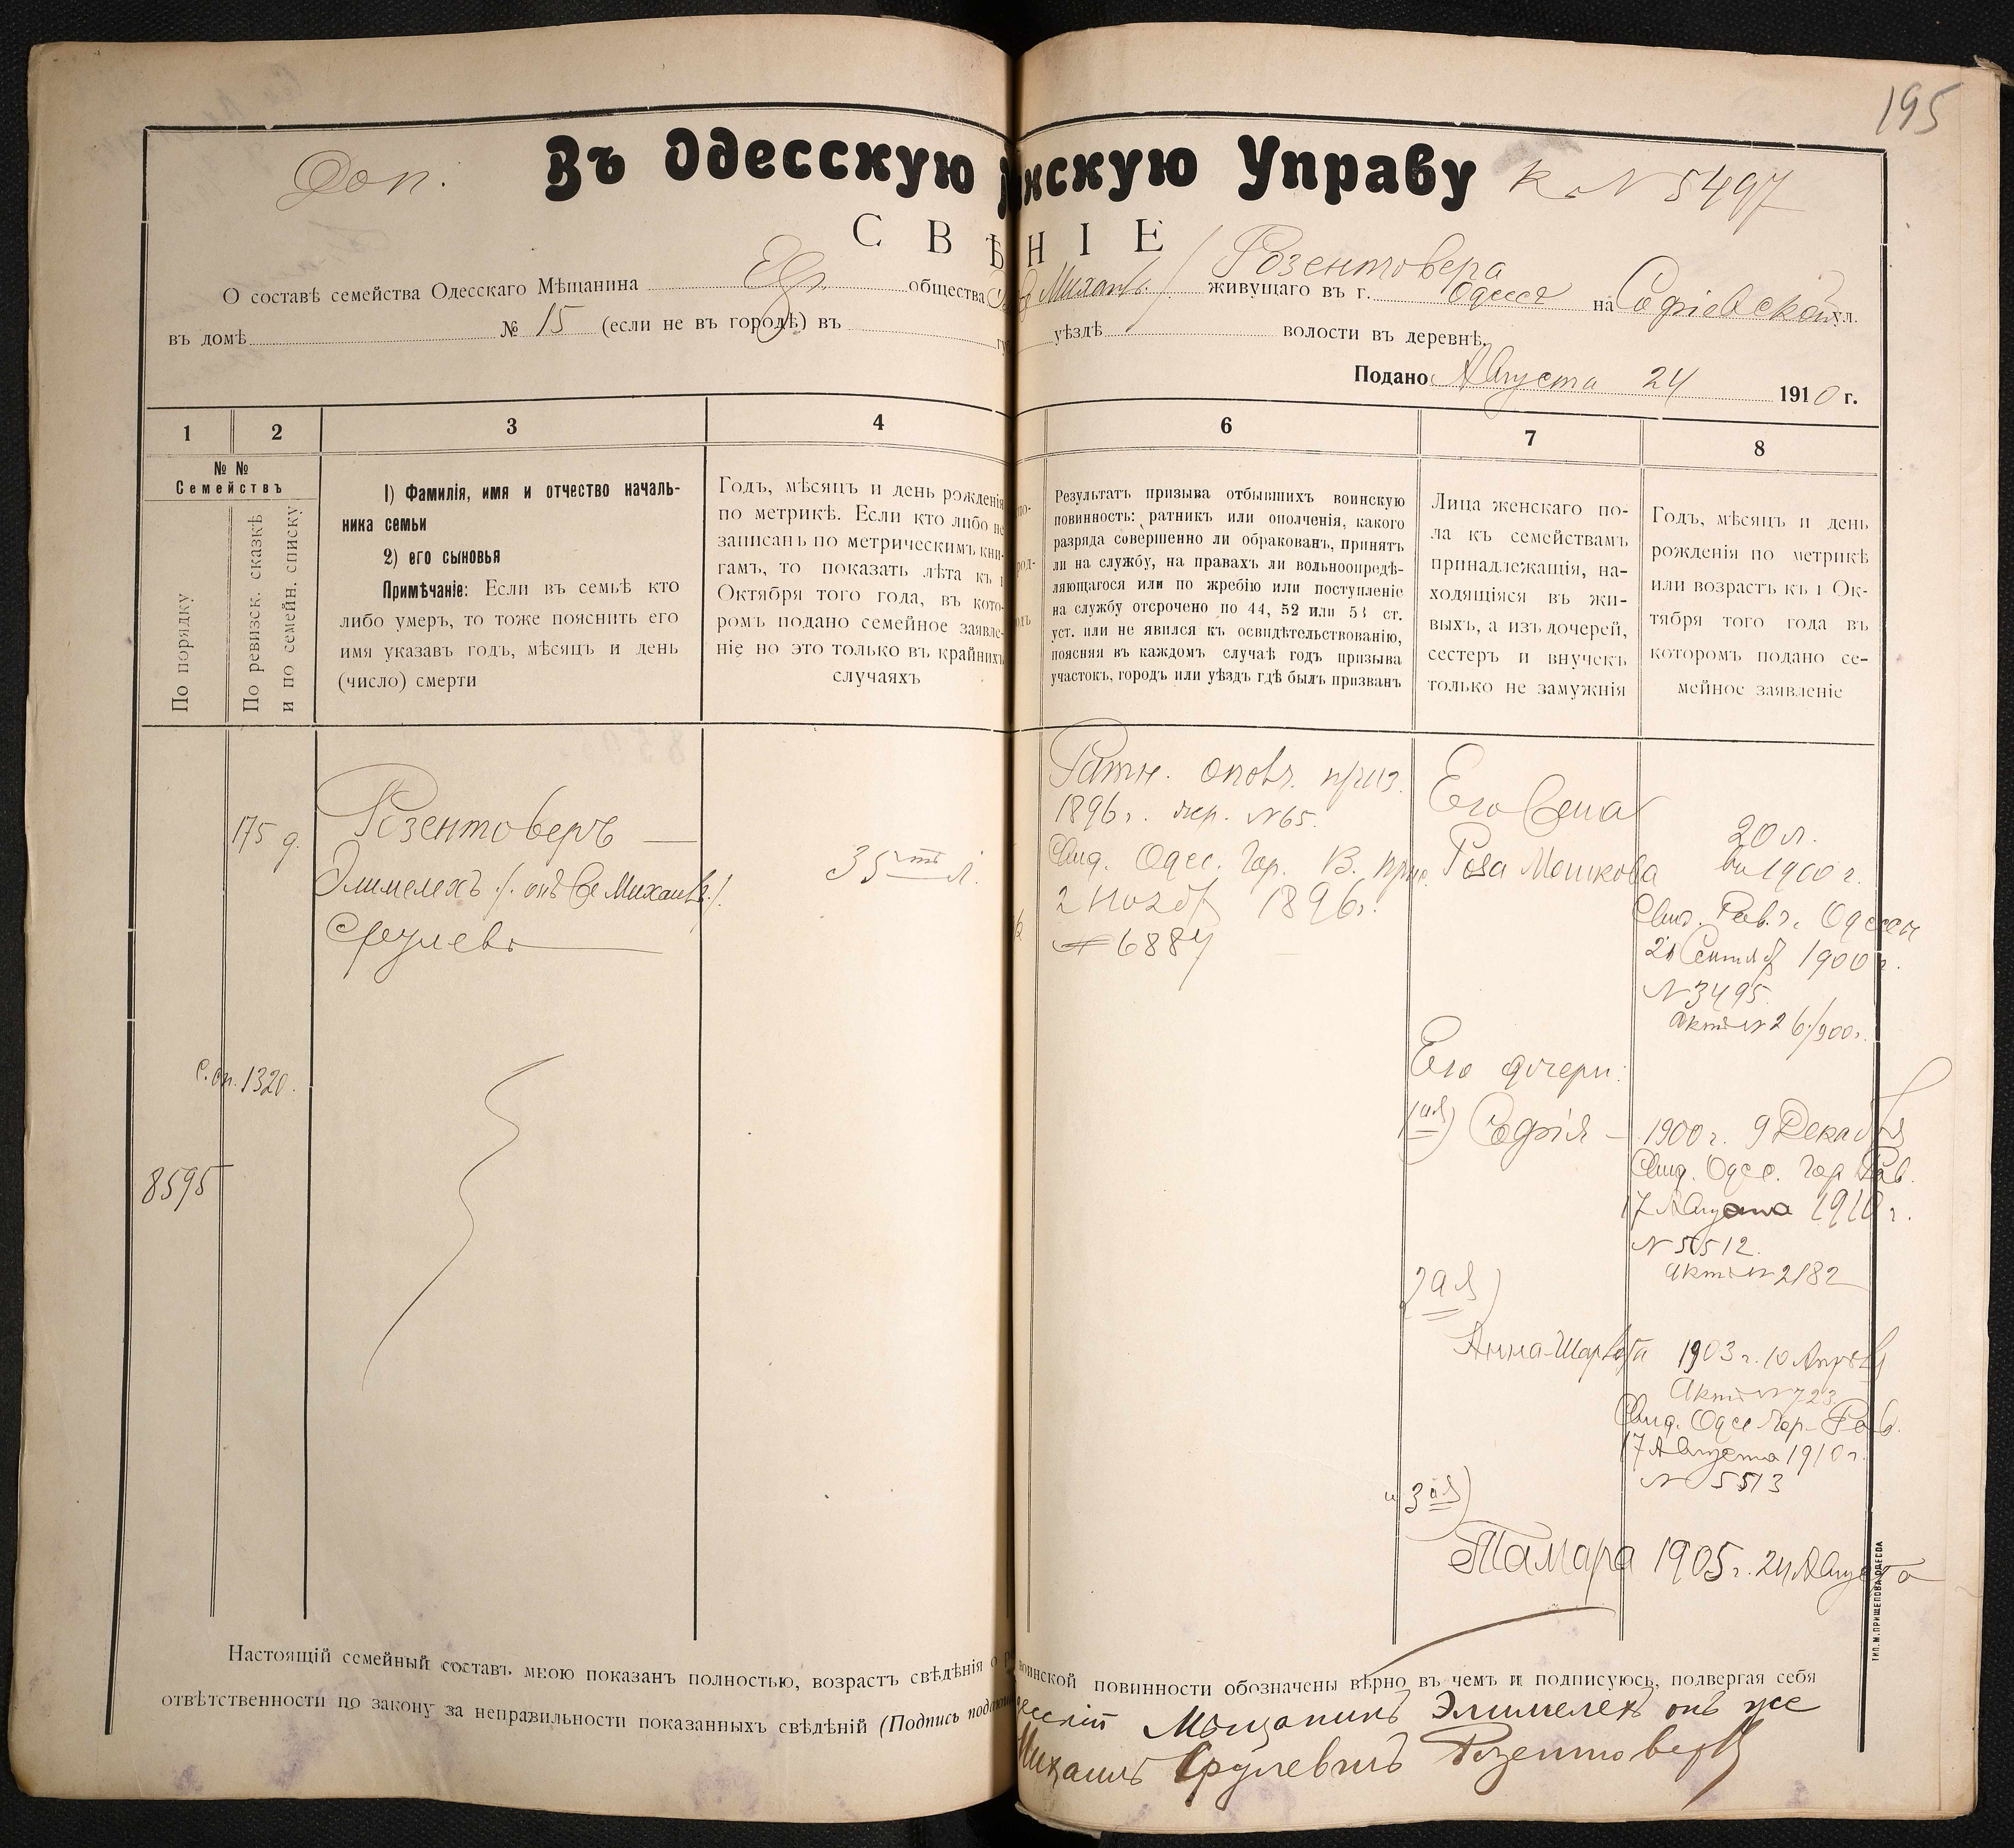 195
Доп.
Въ Одесскую нскую Управу
К. № 5497
СВѢ НІЕ
Розентовера
О составѣ семейства Одесскаго Мѣщанина Евр. общества Михаилъ живущаго въ г. Одессѣ на Софіевской ул.
въ домѣ № 15 (если не въ городѣ) въ уѣздѣ волости въ деревнѣ
Подано Августа 24 1910 г.
1
2
3
4
6
7
8
№ №
Семействъ
По порядку
По ревизск. сказкѣ
и по семейн. списку
1) Фамилія, имя и отчество началь-
ника семьи
2) его сыновья
Примѣчаніе: Если въ семьѣ кто
либо умеръ, то тоже пояснить его
имя указавъ годъ, мѣсяцъ и день
(число) смерти
Годъ, мѣсяцъ и день рожденія
по метрикѣ. Если кто либо не
записанъ по метрическимъ кни-
гамъ, то показать лѣта къ 1
Октября того года, въ кото-
ромъ подано семейное заявле-
ніе но это только въ крайнихъ
случаяхъ
Результатъ призыва отбывшихъ воинскую
повинность: ратникъ или ополченія, какого
разряда совершенно ли обракованъ, принятъ
ли на службу, на правахъ ли вольноопредѣ-
ляющагося или по жребію или поступленіе
на службу отсрочено по 44, 52 или 53 ст.
уст. или не явился къ освидѣтельствованію,
поясняя въ каждомъ случаѣ годъ призыва
участокъ, городъ или уѣздъ гдѣ былъ призванъ
Лица женскаго по-
ла къ семействамъ
принадлежащія, на-
ходящіяся въ жи-
выхъ, а изъ дочерей,
сестеръ и внучекъ
только не замужнія
Годъ, мѣсяцъ и день
рожденія по метрикѣ
или возрастъ къ 1 Ок-
тября того года въ
которомъ подано се-
мейное заявленіе
175 д.
С. оп. 1320.
8595
Розентоверъ
Элимелехъ /. онъ же Михаилъ ./
Срулевъ
35 л.
Ратн. ополч. приз.
1896 г. жер. № 65.
Свид. Одес. Гор. В. прис.
2 Нояб 1896 г.
№ 6884
Его жена
Роза Мошкова
20 л.
въ 1900 г.
Свид. Рав. г. Одессы
21 Сентяб 1900 г.
№ 3495
актъ № 26/900 г.
Его дочери:
1ая) Софія — 1900 г. 9 Декабря
Свид. Одес. Гор Рав.
17 Августа 1910 г.
№ 5512.
актъ № 2182
2ая)
Анна-Шарлота 1903 г. 10 Апрѣля
Актъ № 723
Свид. Одес Гор. Рав.
17 Августа 1910 г.
№ 5513
и 3ая)
Тамара 1905 г. 24 Августа
Настоящій семейный составъ мною показанъ полностью, возрастъ свѣдѣнія о воинской повинности обозначены вѣрно въ чемъ и подписуюсь, подвергая себя
отвѣтственности по закону за неправильности показанныхъ свѣдѣній (Подпись подающ
Мѣщанинъ Элимелехъ онъ же
Михаилъ Срулевичъ Розентоверъ
ТИП. М. ПРИЩЕПОВА ОДЕССА